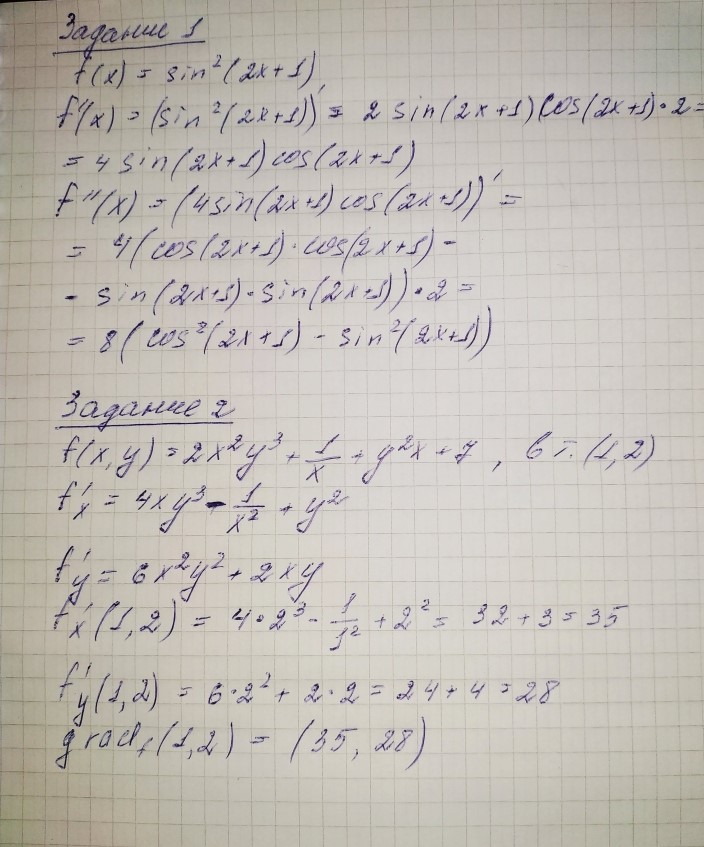 Задание 1
f(x) = sin²(2x+1)
f'(x) = (sin²(2x+1))' = 2 sin(2x+1) cos(2x+1)·2 =
= 4 sin(2x+1) cos(2x+1)
f''(x) = (4sin(2x+1) cos(2x+1))' =
= 4(cos(2x+1)·cos(2x+1) -
- sin(2x+1)·sin(2x+1))·2 =
= 8(cos²(2x+1) - sin²(2x+1))
Задание 2
f(x,y) = 2x²y³ + 1/x + y²x + 7, в т. (1,2)
f'x = 4xy³ - 1/x² + y²
f'y = 6x²y² + 2xy
f'x(1,2) = 4·2³ - 1/1² + 2² = 32 + 3 = 35
f'y(1,2) = 6·2² + 2·2 = 24 + 4 = 28
grad f(1,2) = (35, 28)